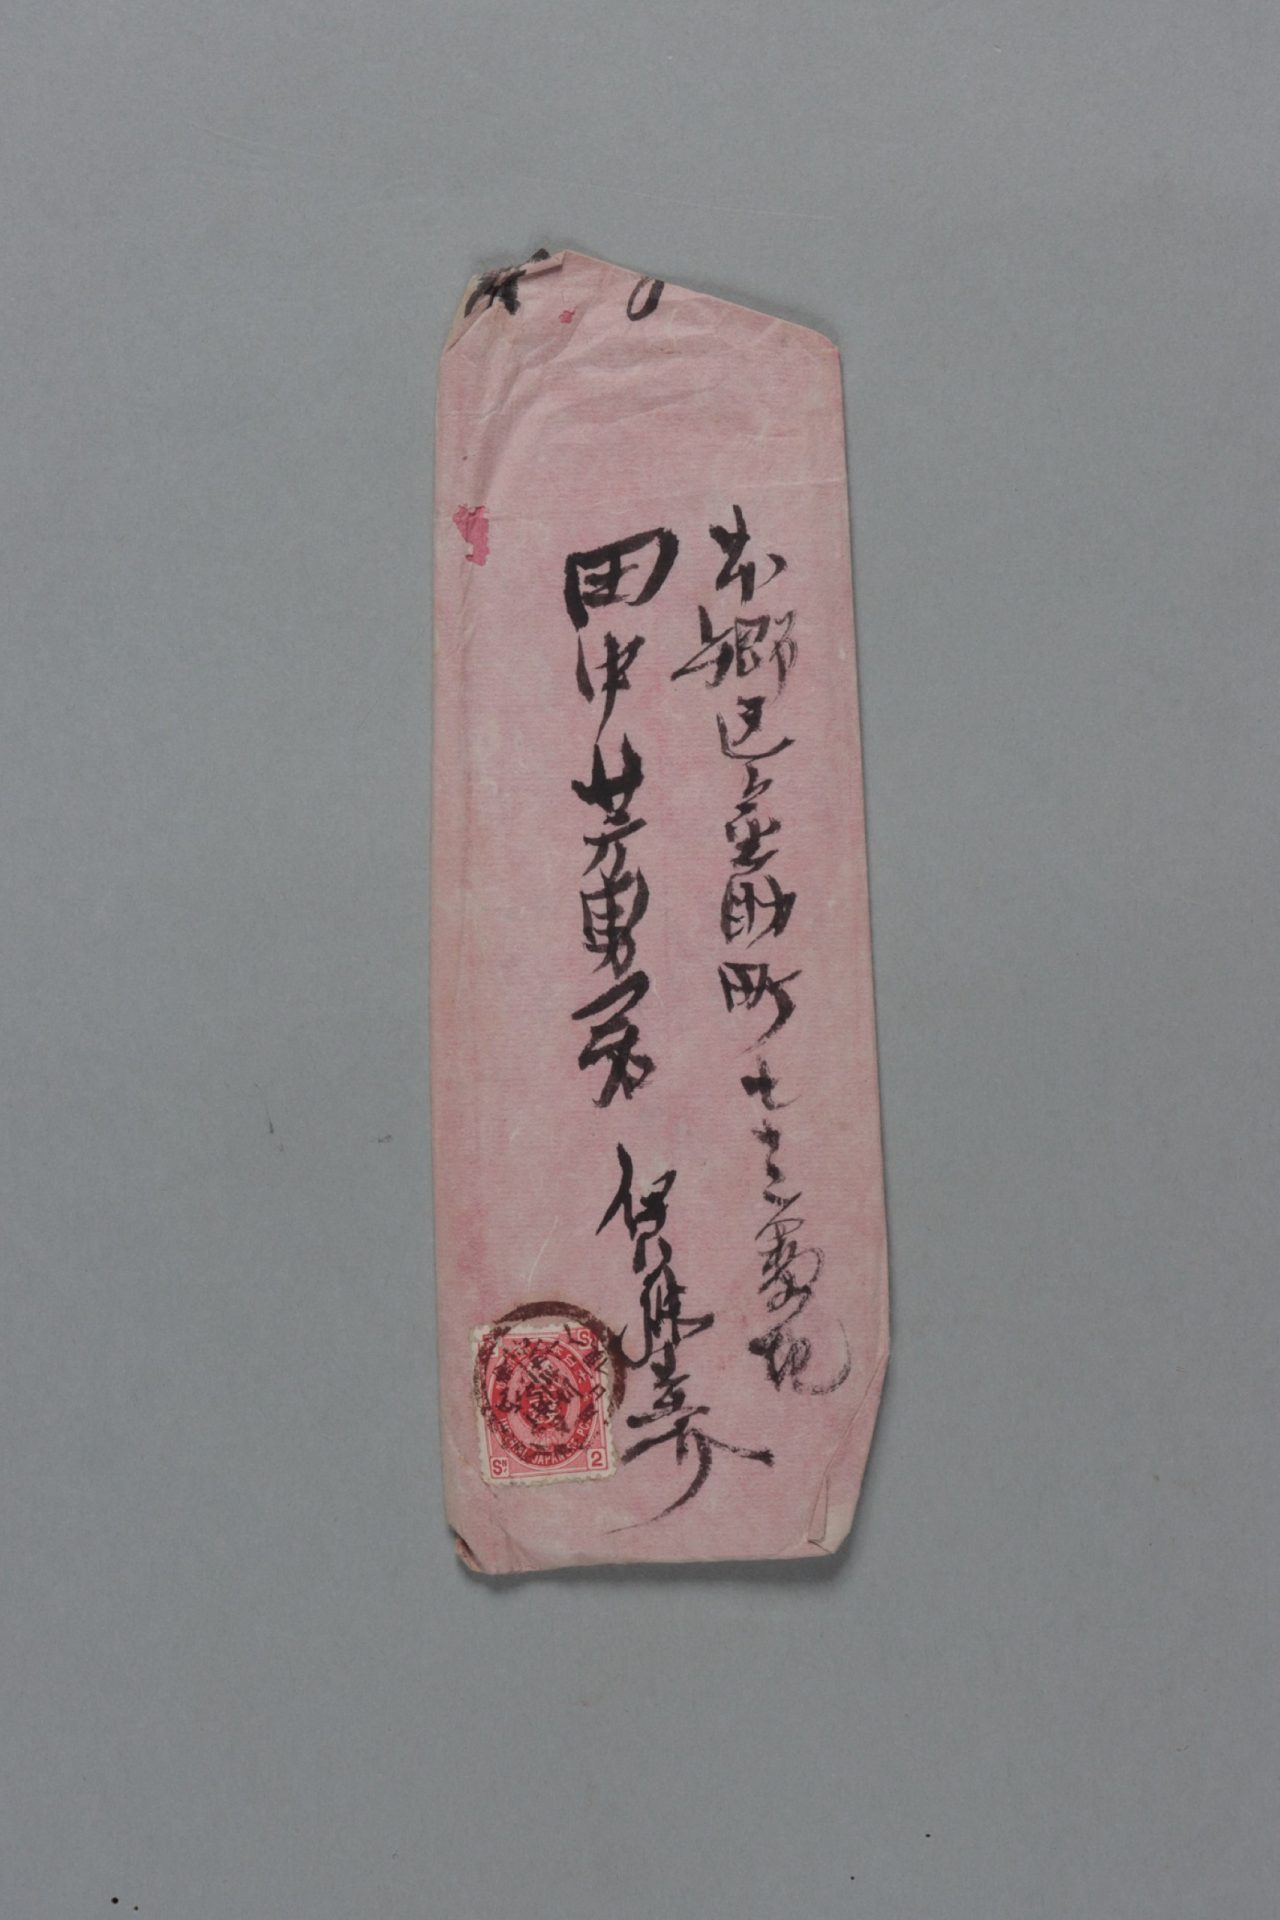 本郷区金助町七十三番地
田中芳男君
伊藤圭介
SN 2